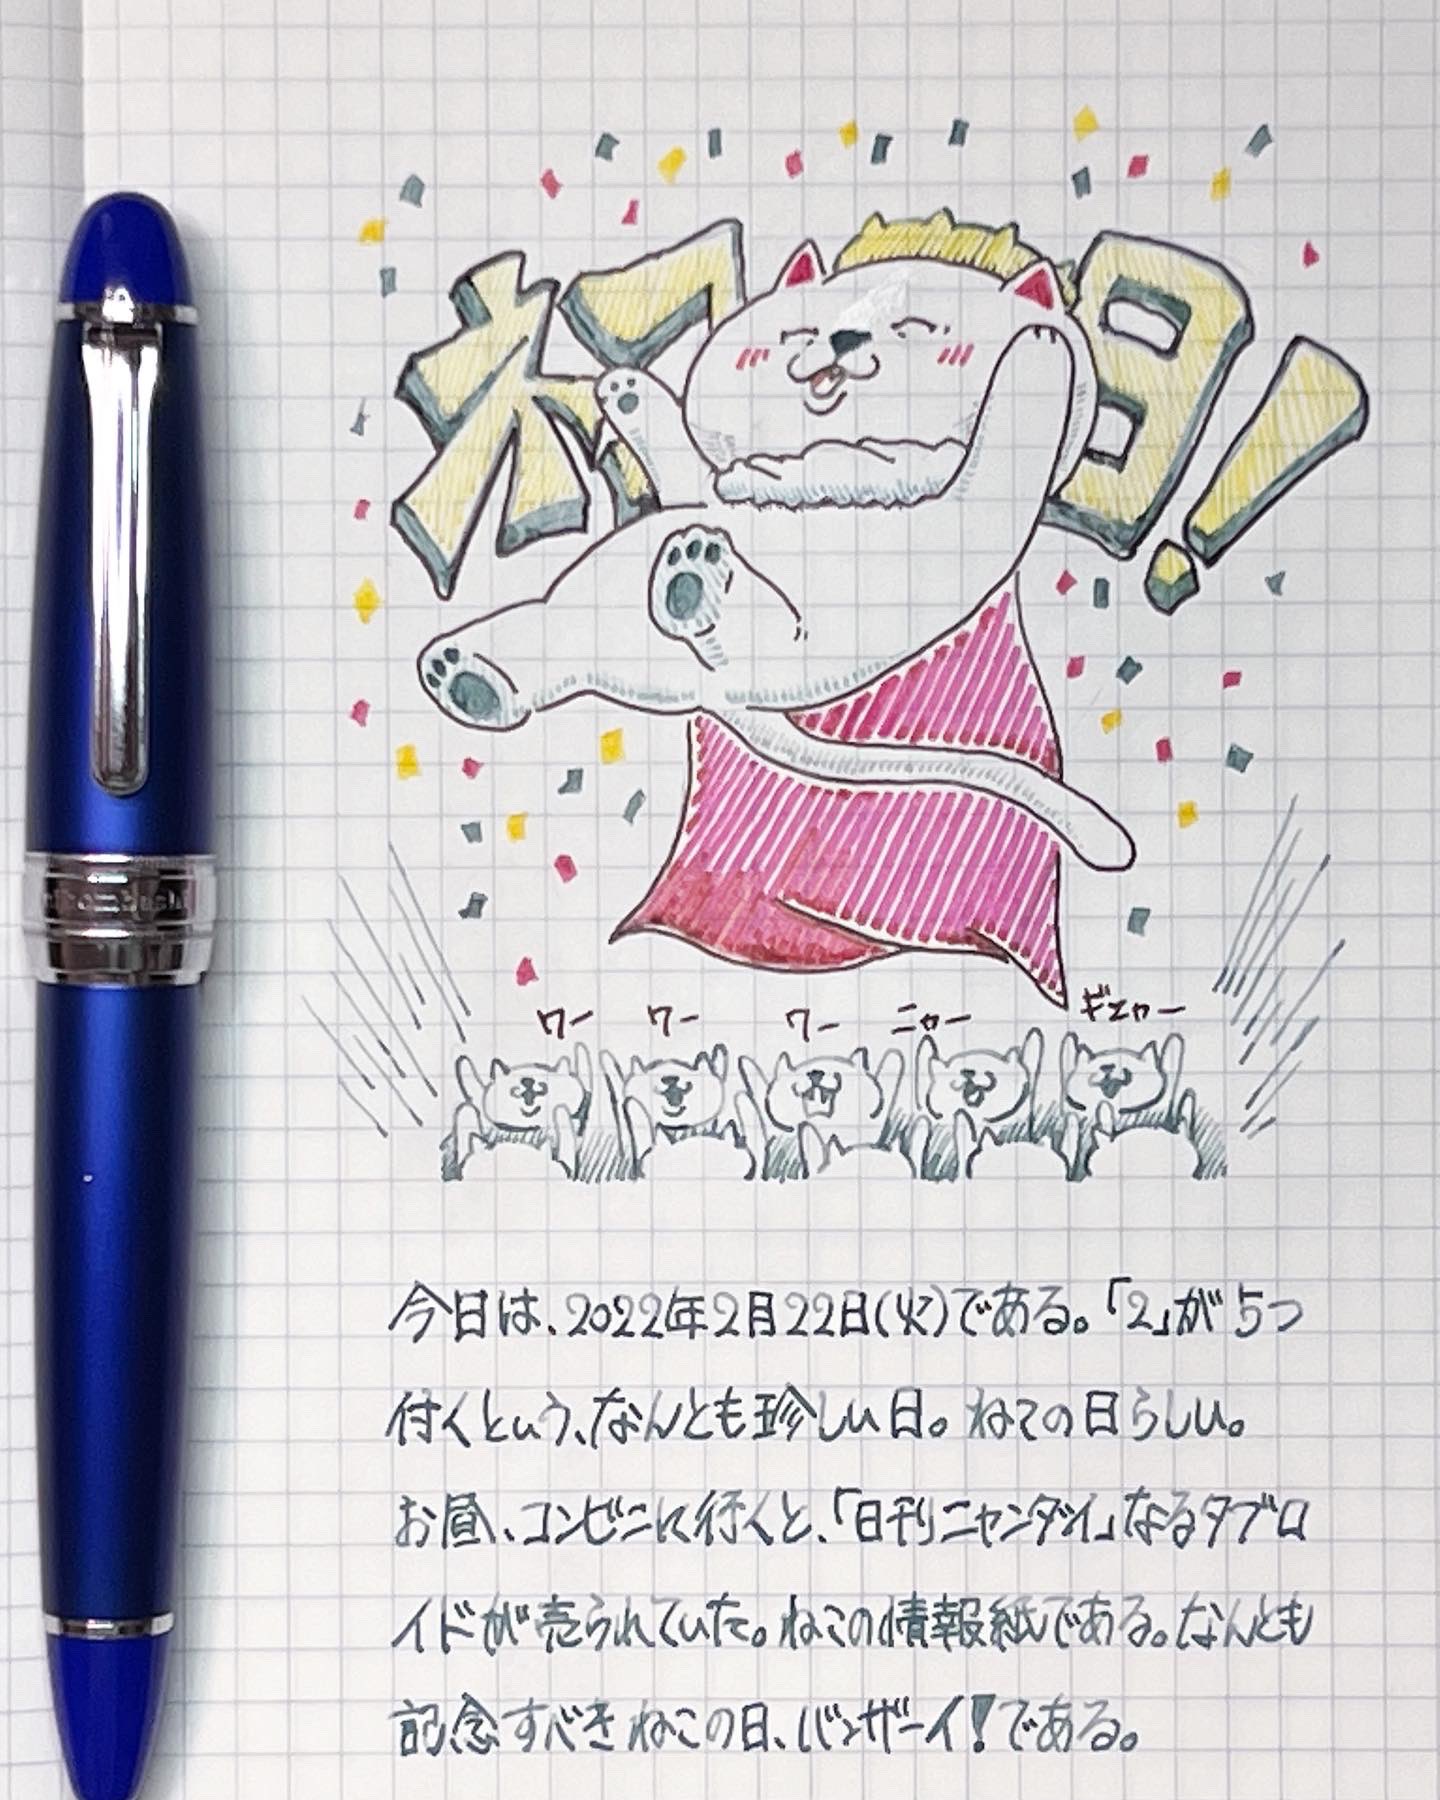 ネコ日!
ワー ワー ワー ニャー ギニャー
今日は、2022年2月22日(火)である。「2」が5つ
付くという、なんとも珍しい日。ねこの日らしい。
お昼、コンビニに行くと、「日刊ニャンダイ」なるタブロ
イドが売られていた。ねこの情報紙である。なんとも
記念すべきねこの日、バンザーイ!である。